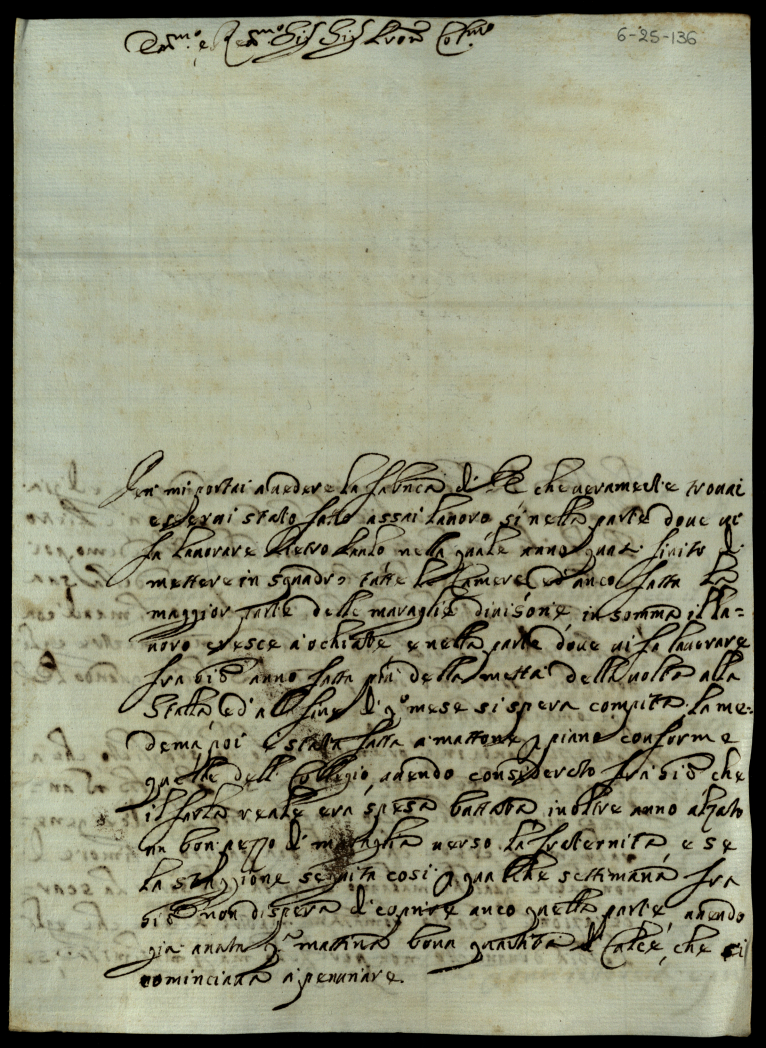 6-25-136
Sig Sig Pron Col.mo
Ieri mi portai a vedere la fabrica di che veramente trovai
esservi stato fatto assai lavoro sì nella parte dove vi
fa lavorare Pietro nella quale anno quasi finito di
mettere in squadro tutte le Camere ed anco fatta la
maggior parte delle muraglie divisorie in somma il la=
voro cresce a ochiate e nella parte dove vi fa lavorare
fra anno fatta più della metta della volta alla
Stalla ed al fine di q.o mese si spera compita. La me=
dema poi è stata fatta a mattone p piano conforme
quelle dell Collegio, avendo considerato fra che
il farla reale era spesa buttata inoltre anno alzato
un bon pezzo di muraglia verso la fraternità, e se
la staggione seguita così p qualche settimana fra
non dispera di coprire anco quella parte, avendo
gia auta q.a mattina bona quantita di Calce, che si
cominciava a penuriare.